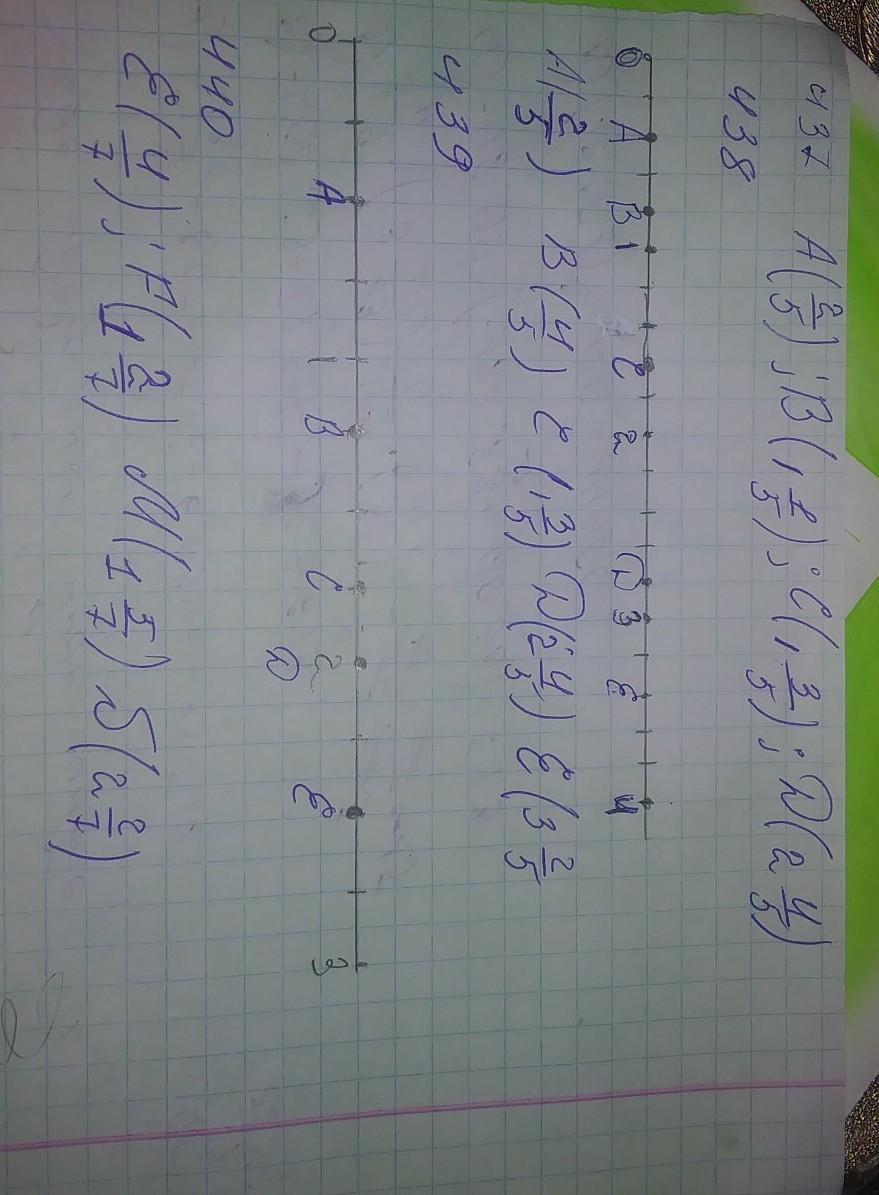 437 A(2/5); B(1 2/5); C(1 3/5); D(2 4/5)
438
0 A B 1 C 2 D 3 E 4
A(2/5) B(4/5) C(1 3/5) D(2 4/5) E(3 2/5
439
0 A 1 B C 2 E 3
D
440
E(4/7); F(1 2/7) M(1 5/7) S(2 2/7)